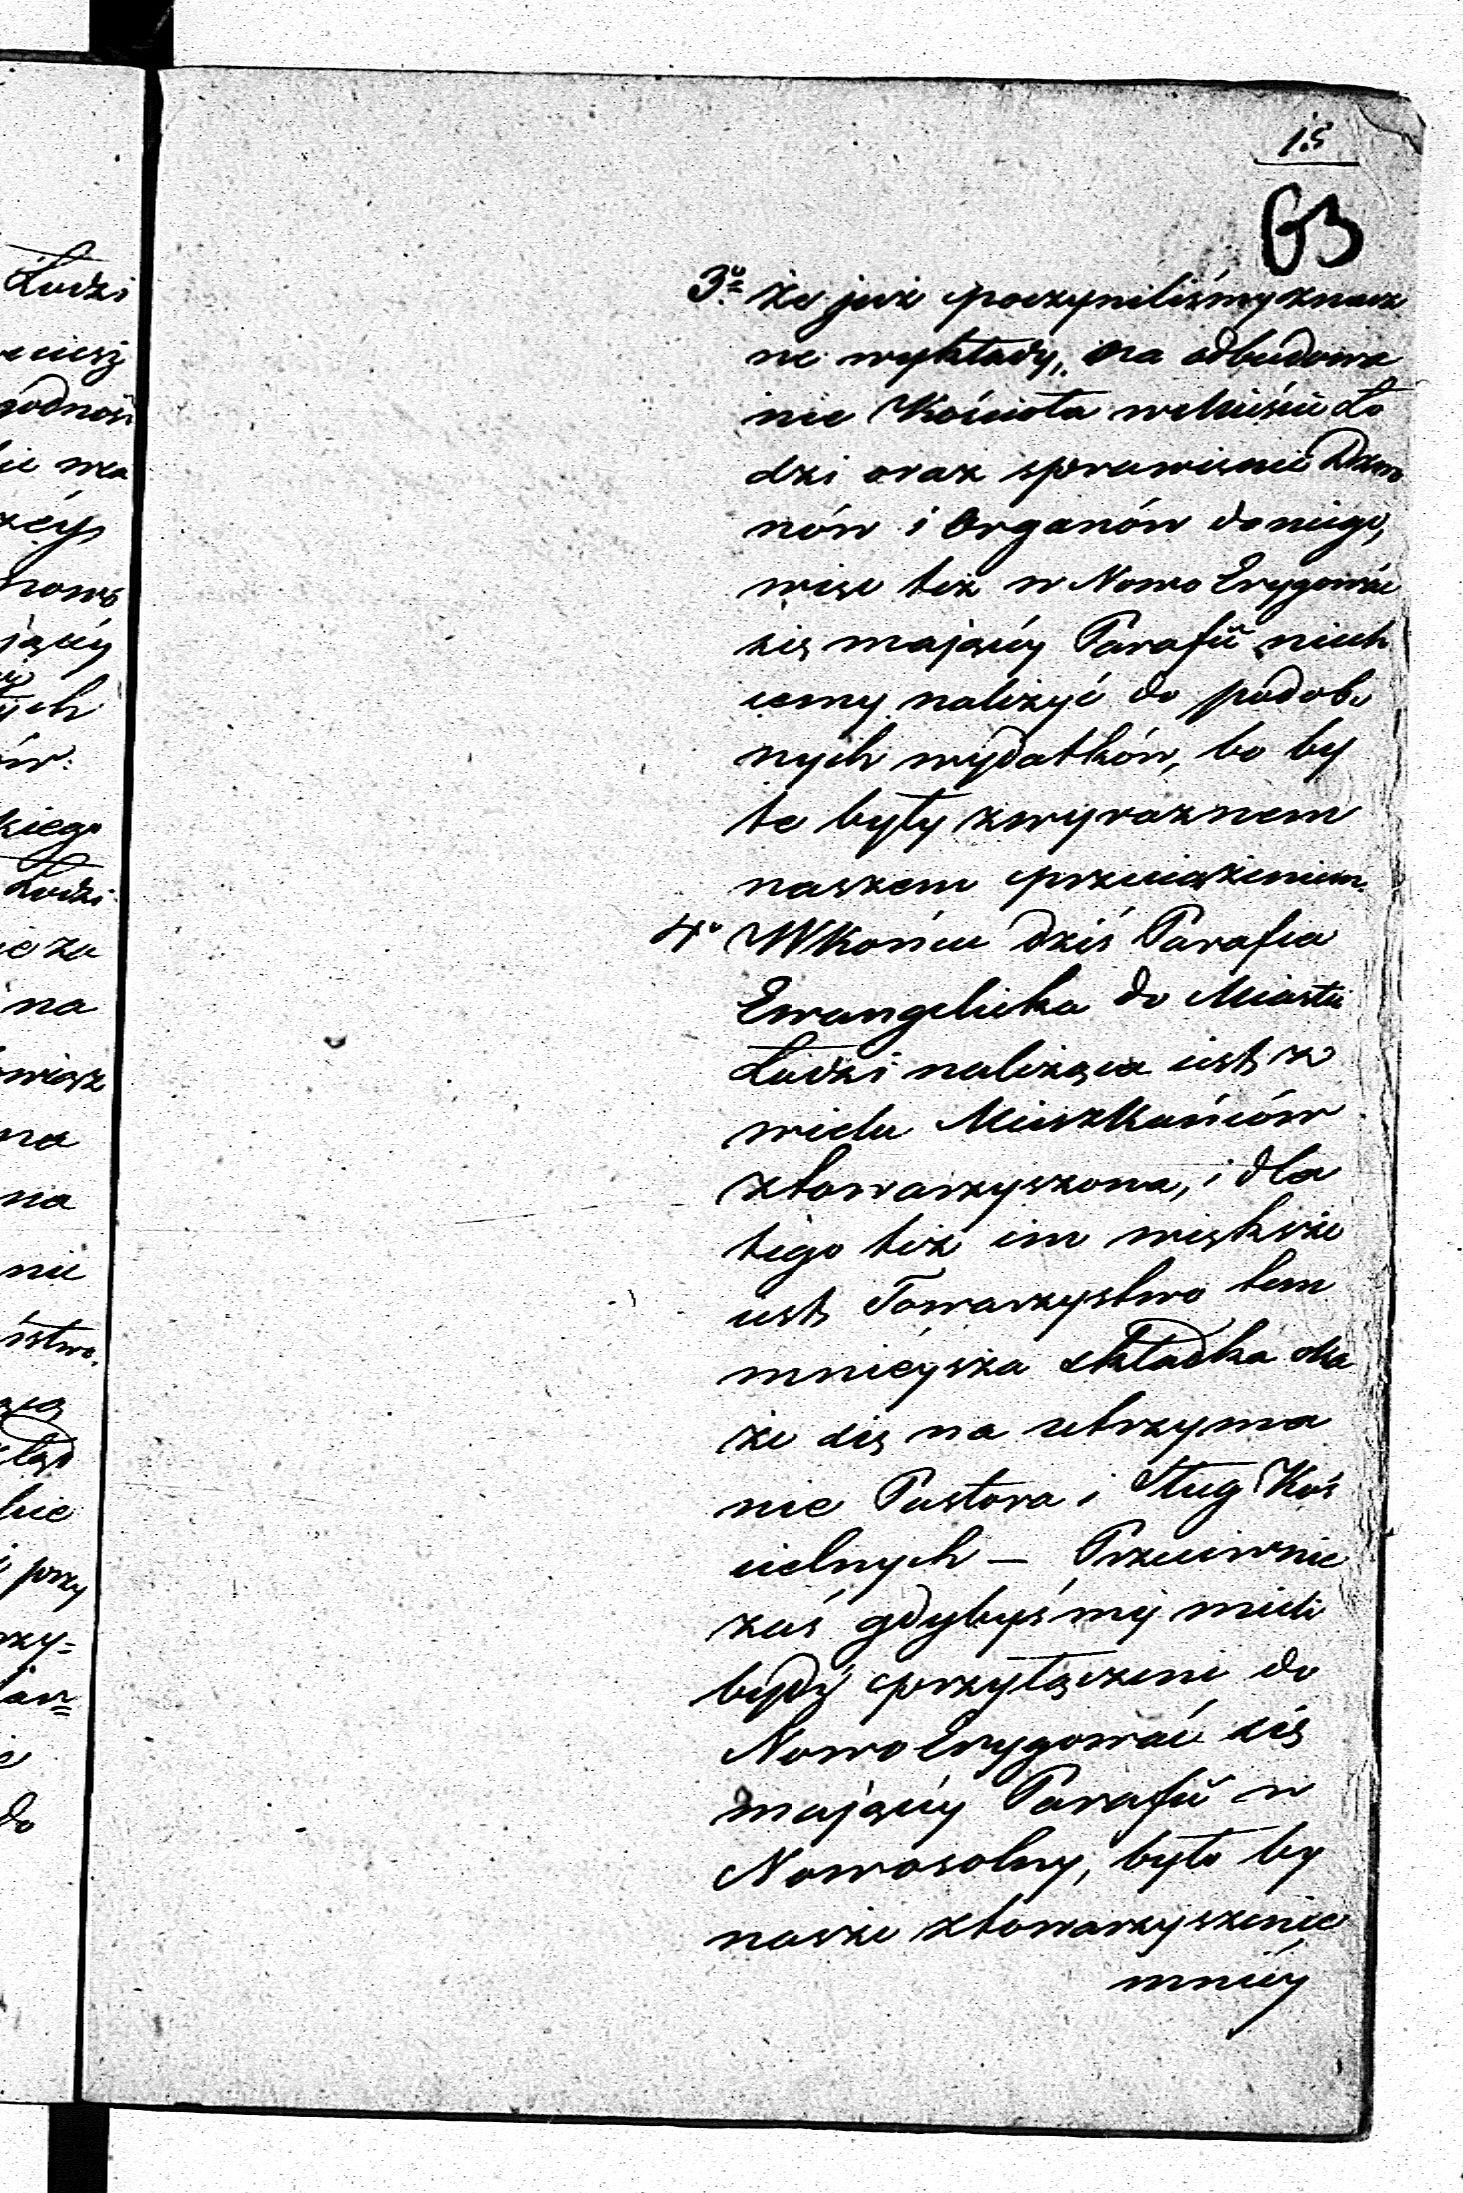 15
63
3º że już poczyniliśmy znacz
ne wykłady, na odbudowa
nie Kościoła w Mieście Ło
dzi oraz sprawienie Dzwo
nów i Organów do niego,
więc też w Nowo Erygować
się maiącéy Parafii niech
cemy należyć do podob
nych wydatków, bo by
te były z wyraznem
naszem przeciążeniem.
4º W Końcu dziś Parafia
Ewangelicka do Miasta
Łodzi należąca iest z
wielu Mieszkańców
ztowarzyszona, i dla
tego też im większe
iest Towarzystwo tem
mnieysza składka oka
że się na utrzyma
nie Pastora i Sług Koś
cielnych — Przeciwnie
zaś gdybyśmy mieli
bydź przyłączeni do
Nowo Erygować się
maiącéy Parafii w
Nowosolny, było by
nasze ztowarzyszenie
mniéy
Łodzi
godnoś
nowo
iącéy
kiego
Łodzi
na
na
na
nie
przy
do